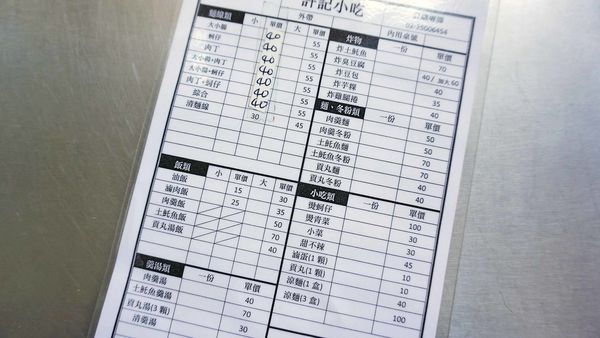 許記小吃
外帶
02-25006454
內用桌號
麵線類 小 單價 大 單價
大小腸 40 55
蚵仔 40 55
肉丁 40 55
大小腸+肉丁 40 55
大小腸+蚵仔 40 55
肉丁+蚵仔 40 55
綜合 40 55
清麵線 30 45
飯類 小 單價 大 單價
油飯 15 30
滷肉飯 25 35
肉羹飯 50
土魠魚飯 70
貢丸湯飯 40
羹湯類 一份 單價
肉羹湯 40
土魠魚羹湯 70
貢丸湯(3顆) 30
清羹湯
炸物 一份 單價
炸土魠魚 70
炸臭豆腐 40/加大60
炸豆包 40
炸芋粿 35
炸雞腿捲 40
麵、冬粉類 一份 單價
肉羹麵 50
肉羹冬粉 50
土魠魚麵 70
土魠魚冬粉 70
貢丸麵 40
貢丸冬粉 40
小吃類 一份 單價
燙蚵仔 100
燙青菜 30
小菜 30
甜不辣 45
滷蛋(1顆) 10
貢丸(1顆) 10
涼麵(1盒) 40
涼麵(3盒) 100